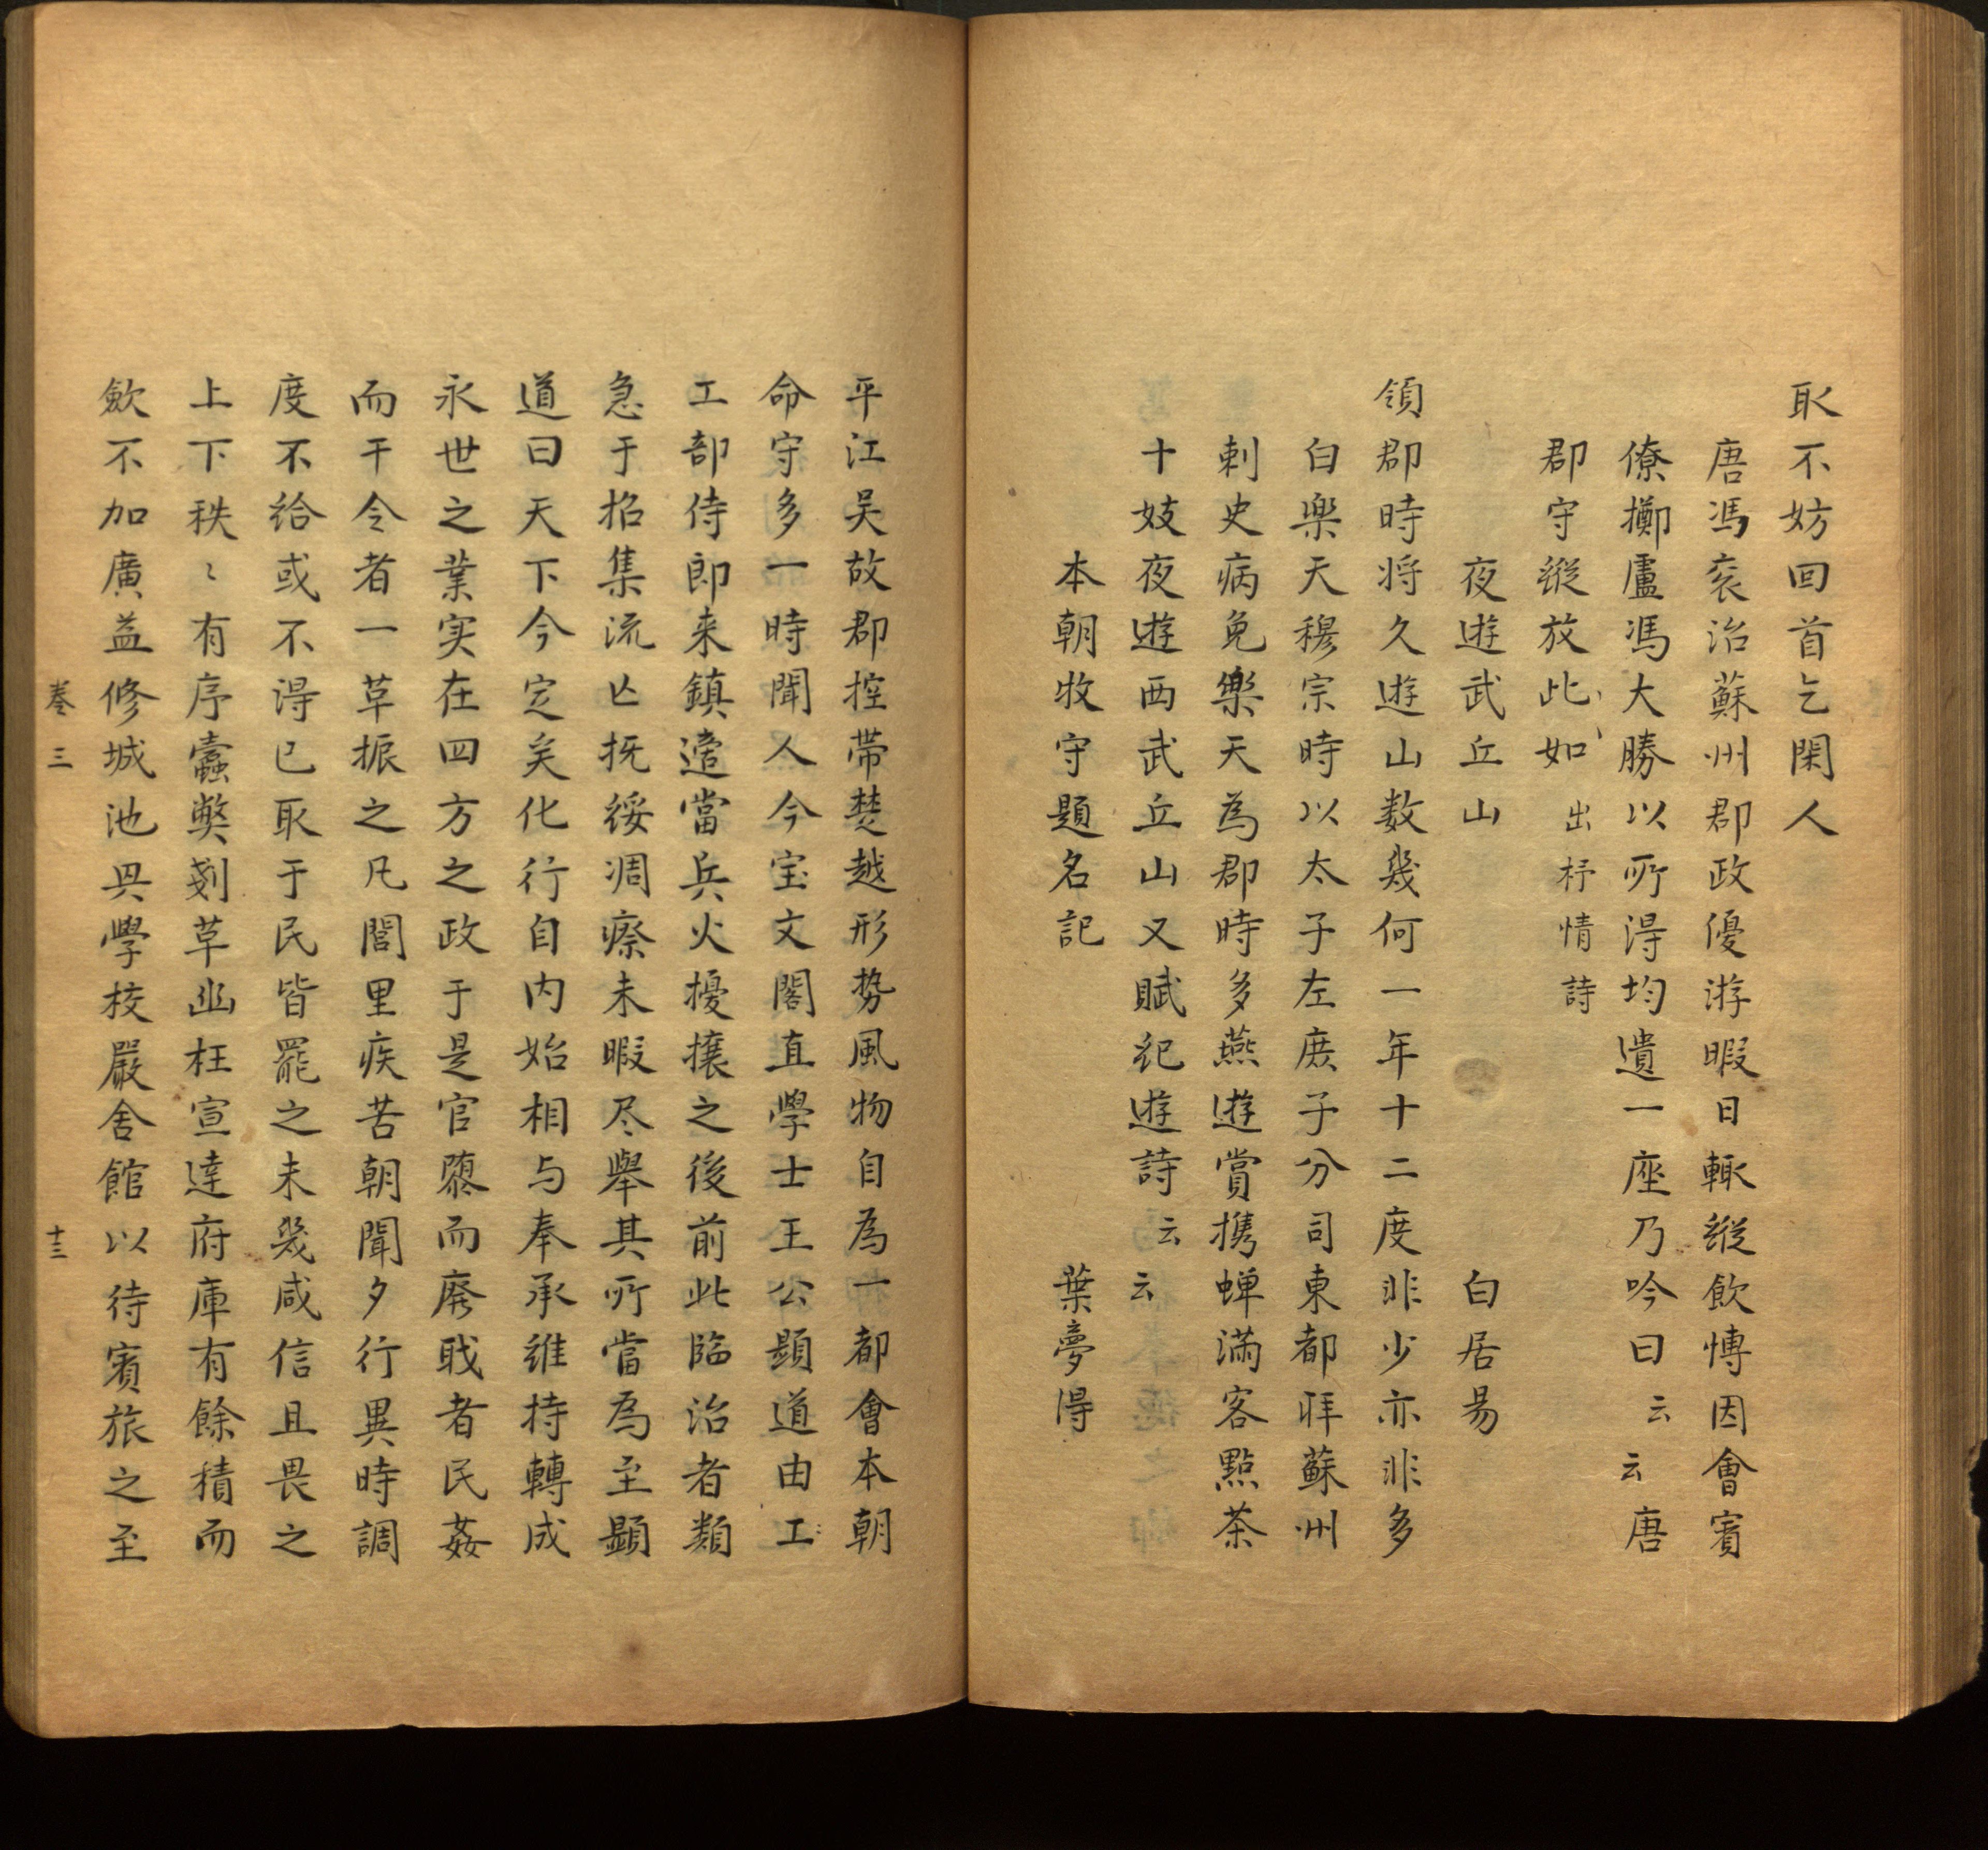 取不妨回首乞閑人
唐馮衮治蘇州郡政優游暇日輙縱飲愽因會賓
僚擲盧馮大勝以所淂均遺一座乃吟曰云云唐
郡守縱放此如出杼情詩
夜遊武丘山 白居易
領郡時将久遊山数幾何一年十二度非少亦非多
白楽天穆宗時以太子左庻子分司東都拜蘇州
刺史病免樂天為郡時多燕遊賞携蟬滿客㸃茶
十妓夜遊西武丘山又賦紀遊詩云云
本朝牧守題名記 葉夢得
平江吴故郡控带楚越形势風物自為一都會本朝
命守多一時聞人今宝文閣直學士王公顕道由工
工部侍郎来鎮適當兵火擾攘之後前此臨治者類
急于招集流亾抚綏凋瘵未暇尽舉其所當為至顕
道曰天下今定矣化行自内始相与奉承維持轉成
永世之業实在四方之政于是官隳而廃戝者民姦
而干令者一草振之凡閭里疾苦朝聞夕行異時調
度不給或不淂已取于民皆罷之未幾咸信且畏之
上下秩〻有序蠧獘剗草幽枉宣逹府庫有餘積而
歛不加廣益修城池興學校嚴舍館以待賓旅之至
卷三 十三